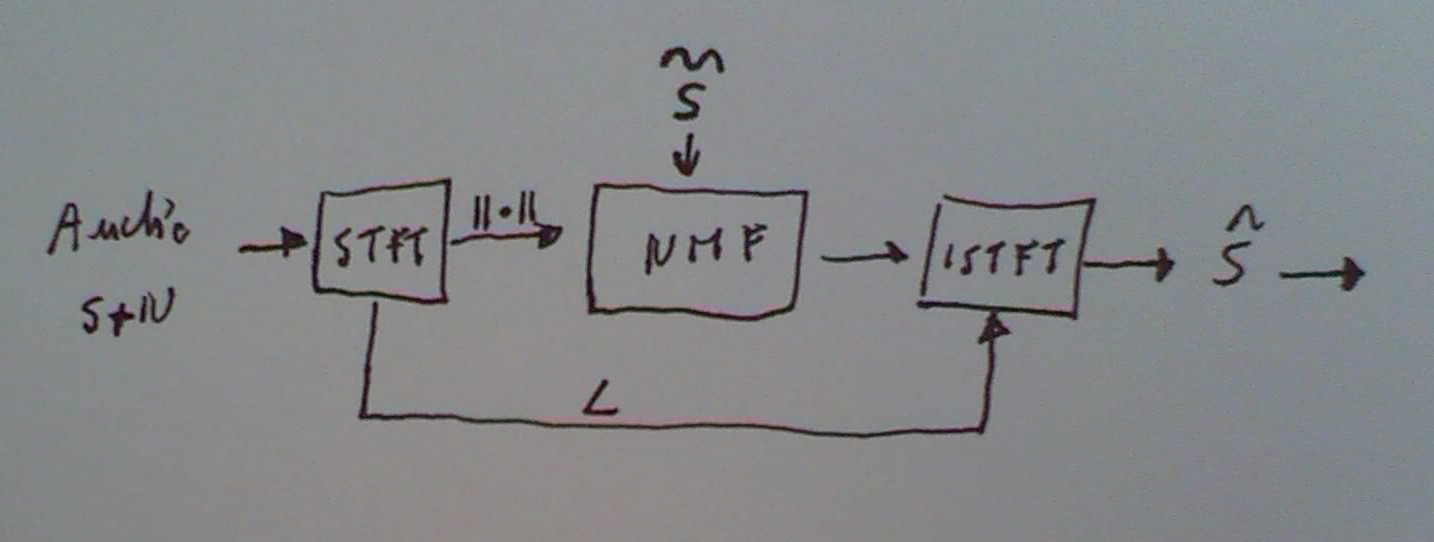 S̃
Audio
S+N
STFT
||•||
NMF
ISTFT
Ŝ
∠